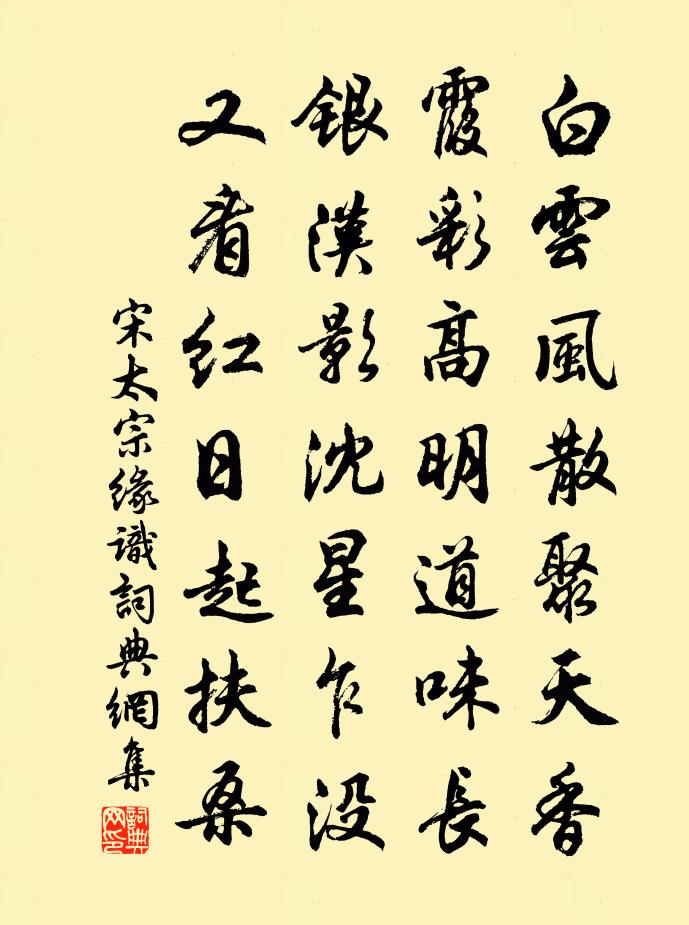 白雲風散聚天香
霞彩高明道味長
銀漢影沈星乍没
又看紅日起扶桑
宋太宗緣識詞典網集
詞典
网印